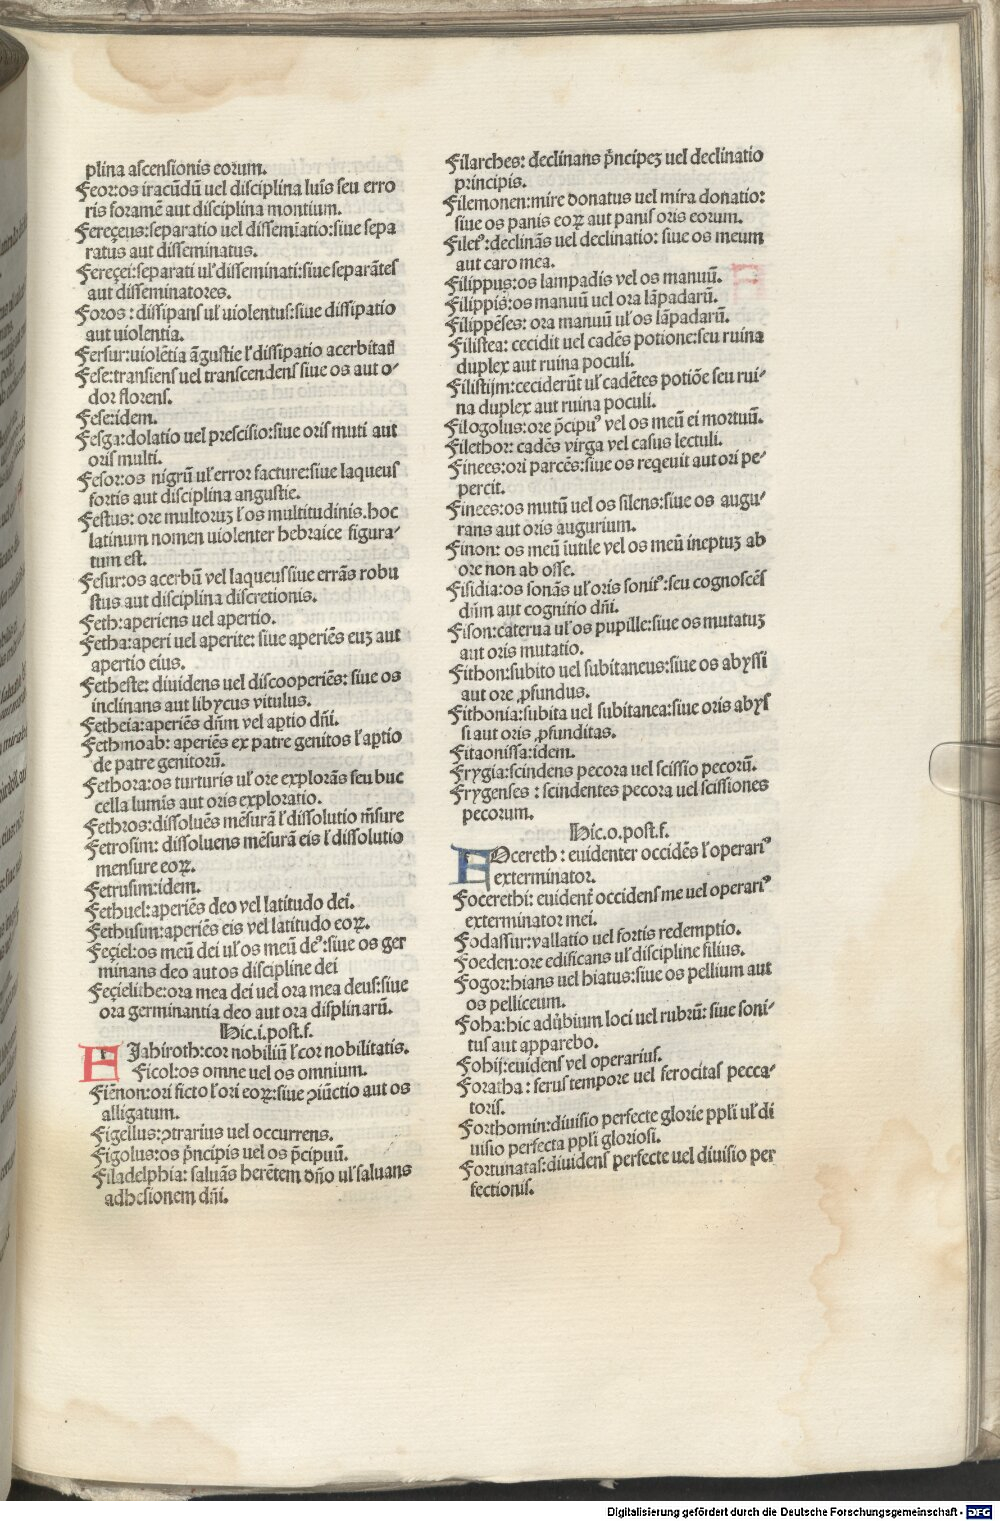 plina ascensionis eorum.
Feor:os iracūdū uel disciplina luīs seu erro
ris foramē aut disciplina montium.
Fereçeus:separatio uel dissemīatio:siue sepa
ratus aut disseminatus.
Fereçei:separati ul' disseminati:siue separātes
aut disseminatores.
Foros : dissipans ul' uiolentus:siue dissipatio
aut uiolentia.
Fersur:uiolētia āgustie ł dissipatio acerbitatū
Fese:transiens uel transcendens siue os aut o-
dor florens.
Fese:idem.
Fesga:dolatio uel prescisio:siue oris muti aut
oris multi.
Fesor:os nigrū ul' error facture:siue laqueus
fortis aut disciplina angustie.
Festus: ore multoruꝫ ł os multitudinis.hoc
latinum nomen uiolenter hebraice figura-
tum est.
Fesur:os acerbū vel laqueus siue errās robu
stus aut disciplina discretionis.
Feth:aperiens uel apertio.
Fetha:aperi uel aperite: siue aperiēs euꝫ aut
apertio eius.
Fetheste: diuidens uel discooperiēs: siue os
inclinans aut libycus vitulus.
Fetheia:aperiēs dn̄m vel aꝑtio dn̄i.
Fethmoab: aperiēs ex patre genitos ł aꝑtio
de patre genitorū.
Fethora:os turturis ul' ore explorās seu buc
cella lumīs aut oris exploratio.
Fethros:dissoluēs mēsurā ł dissolutio m̄sure
Fetrosim: dissoluens mēsurā eis ł dissolutio
mensure eoꝝ.
Fetrusim:idem.
Fethuel:aperiēs deo vel latitudo dei.
Fethusim:aperiēs eis vel latitudo eoꝝ.
Feçiel:os meū dei ul' os meū deꝰ:siue os ger
minans deo aut os discipline dei
Feçielithe:ora mea dei uel ora mea deus:siue
ora germinantia deo aut ora disꝑlinarū.
Hic.i.post.f.
FIahiroth:cor nobiliū ł cor nobilitatis.
Ficol:os omne uel os omnium.
Fiēnon:ori ficto ł ori eoꝝ:siue ꝯiūctio aut os
alligatum.
Figellus:ꝯtrarius uel occurrens.
Figolus:os p̄ncipis uel os p̄cipuū.
Filadelphia: saluās herētem dn̄o ul' saluans
adhesionem dn̄i.
Filarches: declinans p̄ncipeꝫ uel declinatio
principis.
Filemonen:mire donatus uel mira donatio:
siue os panis eoꝝ aut panis oris eorum.
Filetꝰ:declinās uel declinatio: siue os meum
aut caro mea.
Filippus:os lampadis vel os manuū.
Filippis:os manuū uel ora lāpadarū.
Filippēses: ora manuū ul' os lāpadarū.
Filistea: cecidit uel cadēs potione:seu ruina
duplex aut ruina poculi.
Filistijm:ceciderūt ul' cadētes potiōe seu rui-
na duplex aut ruina poculi.
Filogolus:ore p̄cipuꝰ vel os meū ei mortuū.
Filethor: cadēs virga vel casus lectuli.
Finees:ori parcēs:siue os reqeuit aut ori pe-
percit.
Finees:os mutū uel os silens:siue os augu-
rans aut oris augurium.
Finon: os meū īutile vel os meū ineptuꝫ ab
ore non ab osse.
Fisidia:os sonās ul' oris sonitꝰ:seu cognoscēs
dn̄m aut cognitio dn̄i.
Fison:caterua ul' os pupille:siue os mutatuꝫ
aut oris mutatio.
Fithon:subito uel subitaneus:siue os abyssi
aut ore ꝓfundus.
Fithonia:subita uel subitanea:siue oris abys
si aut oris ꝓfunditas.
Fitaonissa:idem.
Frygia:scindens pecora uel scissio pecorū.
Frygenses : scindentes pecora uel scissiones
pecorum.
Hic.o.post.f.
FOcereth : euidenter occidēs ł operariꝰ
exterminator.
Focerethi: euident̄ occidens me uel operariꝰ
exterminator mei.
Fodassur:vallatio uel fortis redemptio.
Foeden:ore edificans ul' discipline filius.
Fogor:hians uel hiatus:siue os pellium aut
os pelliceum.
Foha:hic adūbium loci uel rubrū: siue soni-
tus aut apparebo.
Fohij:euidens vel operarius.
Foratha : serus tempore uel ferocitas pecca-
toris.
Forthomin:diuisio perfecte glorie ppl̄i ul' di
uisio perfecta ppl̄i gloriosi.
Fortunatas:diuidens perfecte uel diuisio per
fectionis.
Digitalisierung gefördert durch die Deutsche Forschungsgemeinschaft - DFG